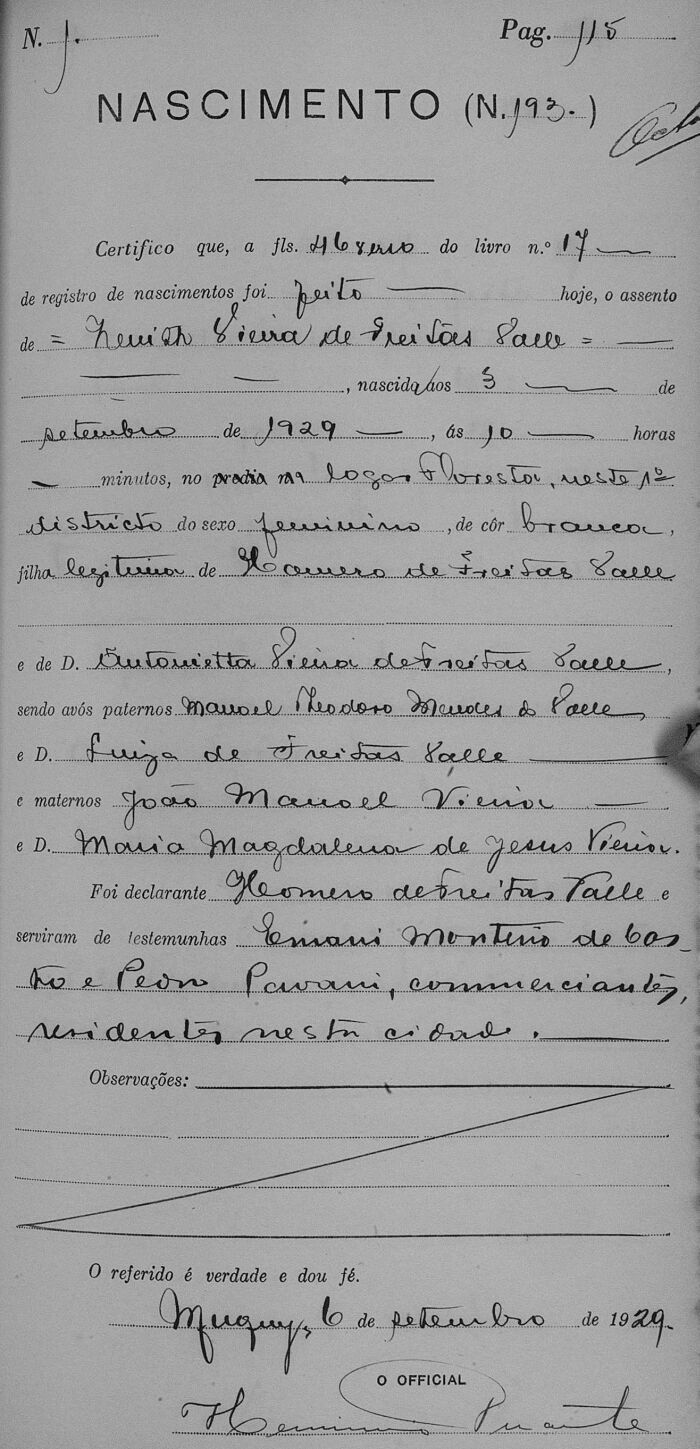 N. 1. Pag. 115
NASCIMENTO (N. 193.)
Certifico que, a fls. 46 verso do livro n.º 17
de registro de nascimentos foi feito hoje, o assento
de = Zenith Vieira de Freitas Valle =
, nascida aos 3 de
setembro de 1929, ás 10 horas
minutos, no logar Floresta, neste 1º
districto do sexo feminino, de côr branca,
filha legitima de Homero de Freitas Valle
e de D. Antonietta Vieira de Freitas Valle,
sendo avós paternos Manoel Theodoro Mendes do Valle
e D. Luiza de Freitas Valle
e maternos João Manoel Vieira
e D. Maria Magdalena de Jesus Vieira.
Foi declarante Homero de Freitas Valle e
serviram de testemunhas Ernani Monteiro de Cas-
tro e Pedro Pavani, commerciantes,
residentes nesta cidade.
Observações:
O referido é verdade e dou fé.
Muquy, 6 de setembro de 1929.
O OFFICIAL